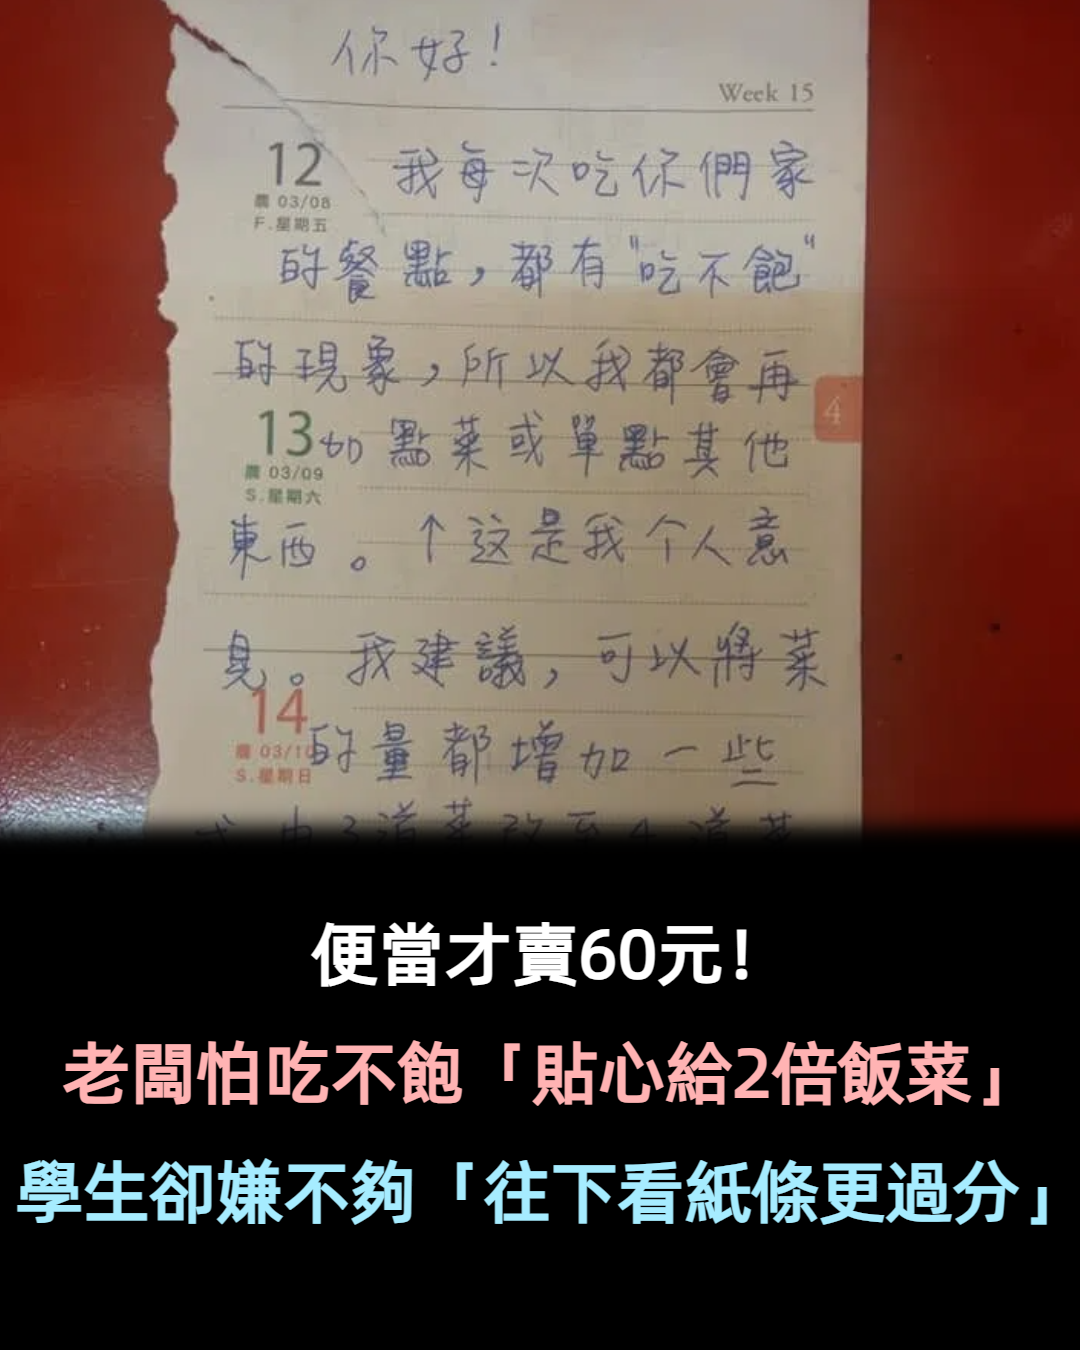 你好！
Week 15
12
農 03/08
F.星期五
我每次吃你們家
的餐點，都有"吃不飽"
的現象，所以我都會再
13
農 03/09
S.星期六
加點菜或單點其他
4
東西。↑這是我个人意
見。我建議，可以將菜
14
農 03/10
S.星期日
的量都增加一些
由3道菜改至4道菜
便當才賣60元！
老闆怕吃不飽「貼心給2倍飯菜」
學生卻嫌不夠「往下看紙條更過分」